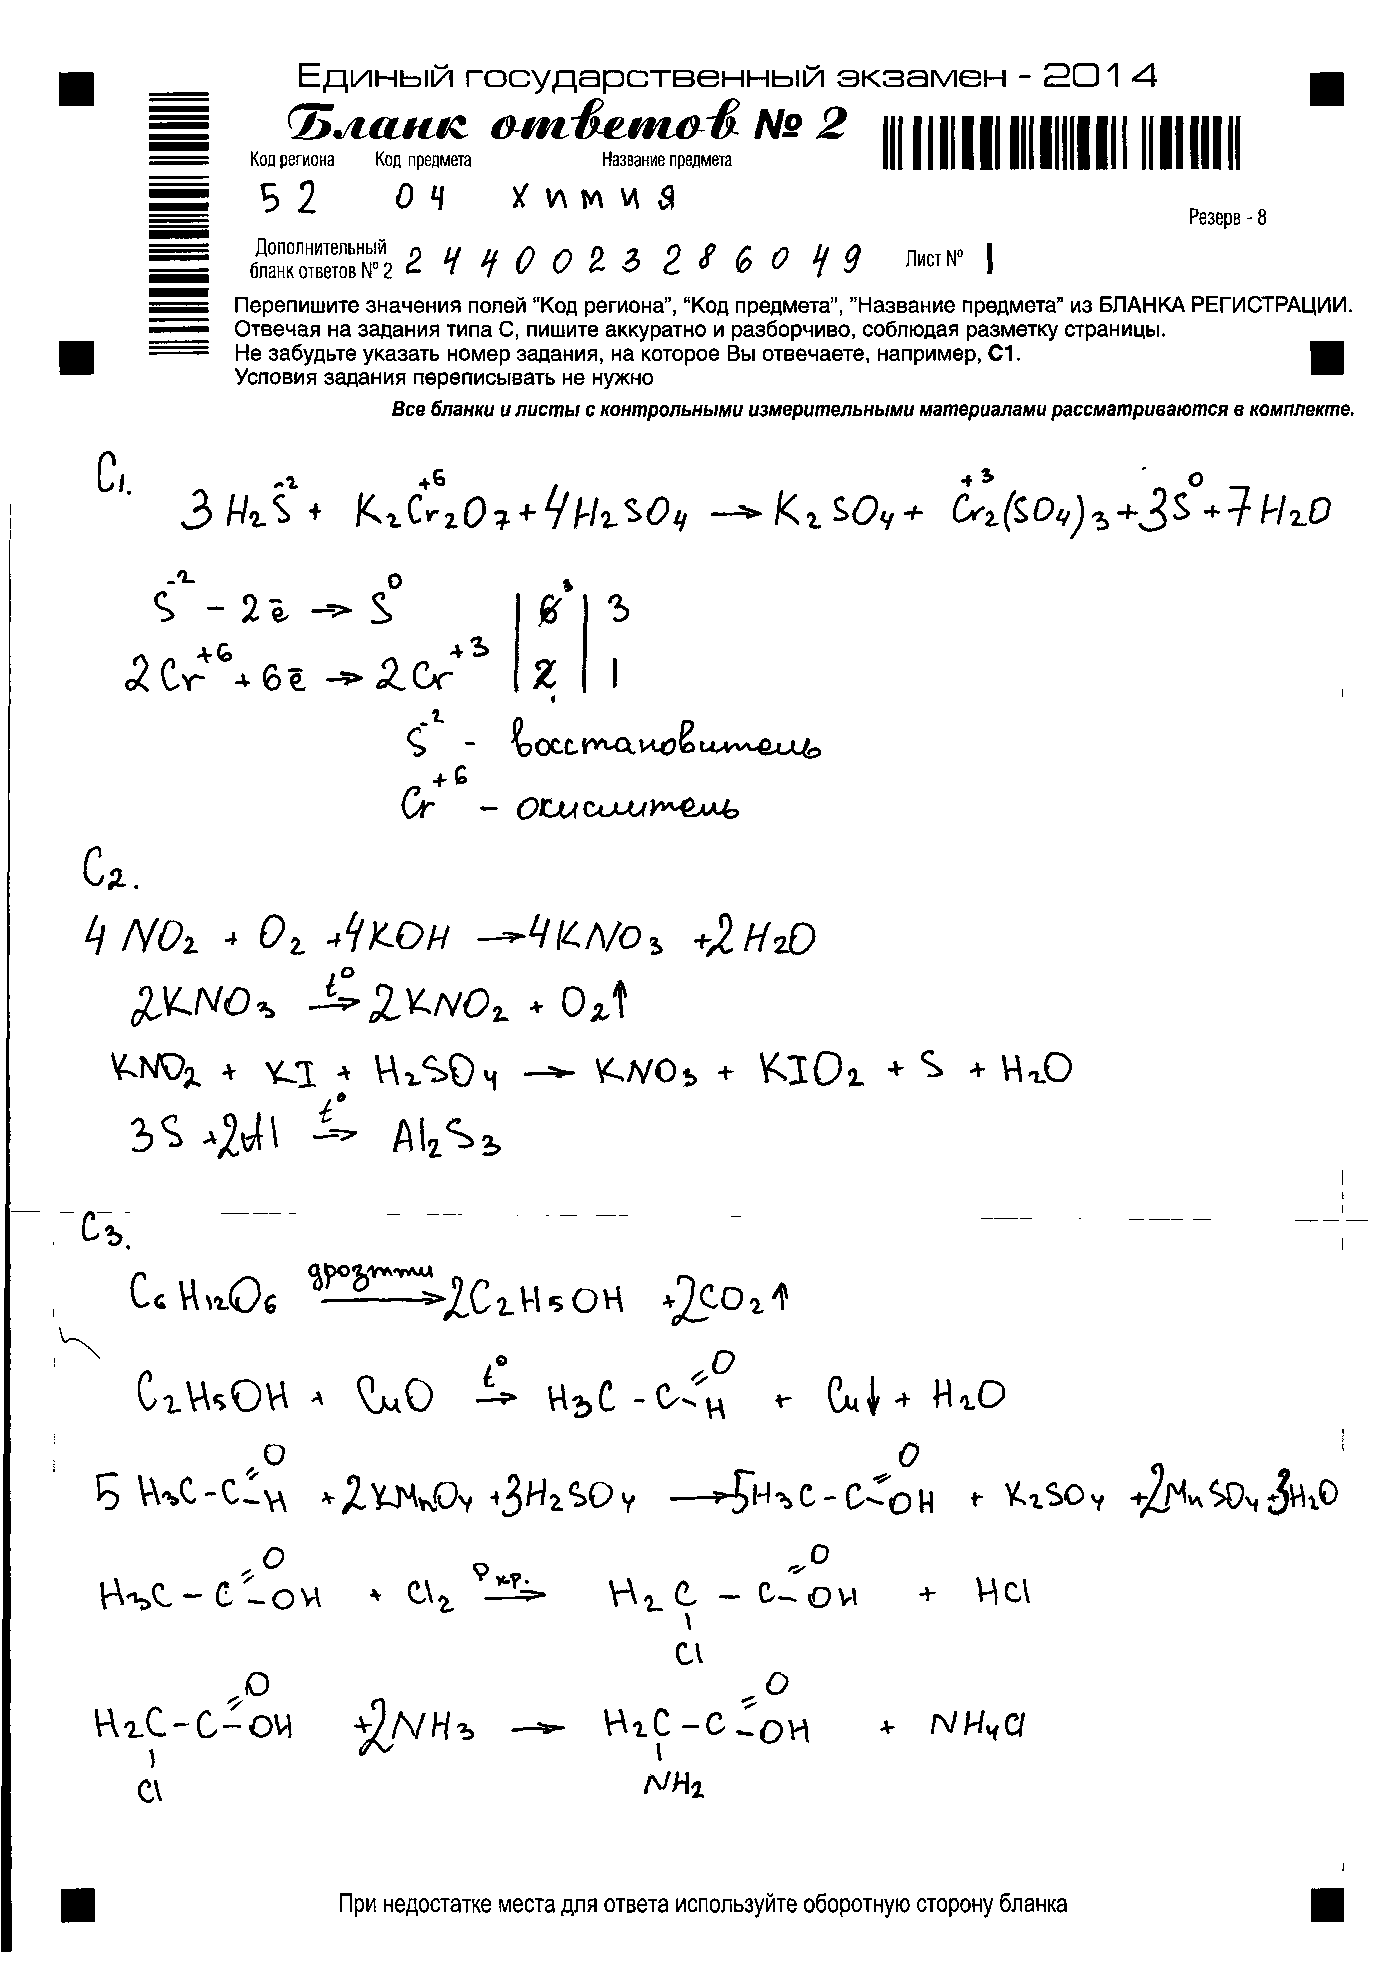 Единый государственный экзамен - 2014
Бланк ответов № 2
Код региона Код предмета Название предмета
52 04 химия
Резерв - 8
Дополнительный бланк ответов №2 2440023286049 Лист № 1
Перепишите значения полей "Код региона", "Код предмета", "Название предмета" из БЛАНКА РЕГИСТРАЦИИ.
Отвечая на задания типа С, пишите аккуратно и разборчиво, соблюдая разметку страницы.
Не забудьте указать номер задания, на которое Вы отвечаете, например, С1.
Условия задания переписывать не нужно
Все бланки и листы с контрольными измерительными материалами рассматриваются в комплекте.
C1.
3H₂S⁻² + K₂Cr₂⁺⁶O₇ + 4H₂SO₄ → K₂SO₄ + Cr₂⁺³(SO₄)₃ + 3S⁰ + 7H₂O
S⁻² - 2ē → S⁰ | 6 3 | 3
2Cr⁺⁶ + 6ē → 2Cr⁺³ | 2 1 | 1
S⁻² - восстановитель
Cr⁺⁶ - окислитель
C2.
4NO₂ + O₂ + 4KOH → 4KNO₃ + 2H₂O
2KNO₃ t°→ 2KNO₂ + O₂↑
KNO₂ + KI + H₂SO₄ → KNO₃ + KIO₂ + S + H₂O
3S + 2Al t°→ Al₂S₃
C3.
C₆H₁₂O₆ дрожжи→ 2C₂H₅OH + 2CO₂↑
C₂H₅OH + CuO t°→ H₃C-C=O-H + Cu↓ + H₂O
5H₃C-C=O-H + 2KMnO₄ + 3H₂SO₄ → 5H₃C-C=O-OH + K₂SO₄ + 2MnSO₄ + 3H₂O
H₃C-C=O-OH + Cl₂ P кр.→ H₂C-C=O-OH + HCl
Cl
H₂C-C=O-OH + 2NH₃ → H₂C-C=O-OH + NH₄Cl
Cl NH₂
При недостатке места для ответа используйте оборотную сторону бланка